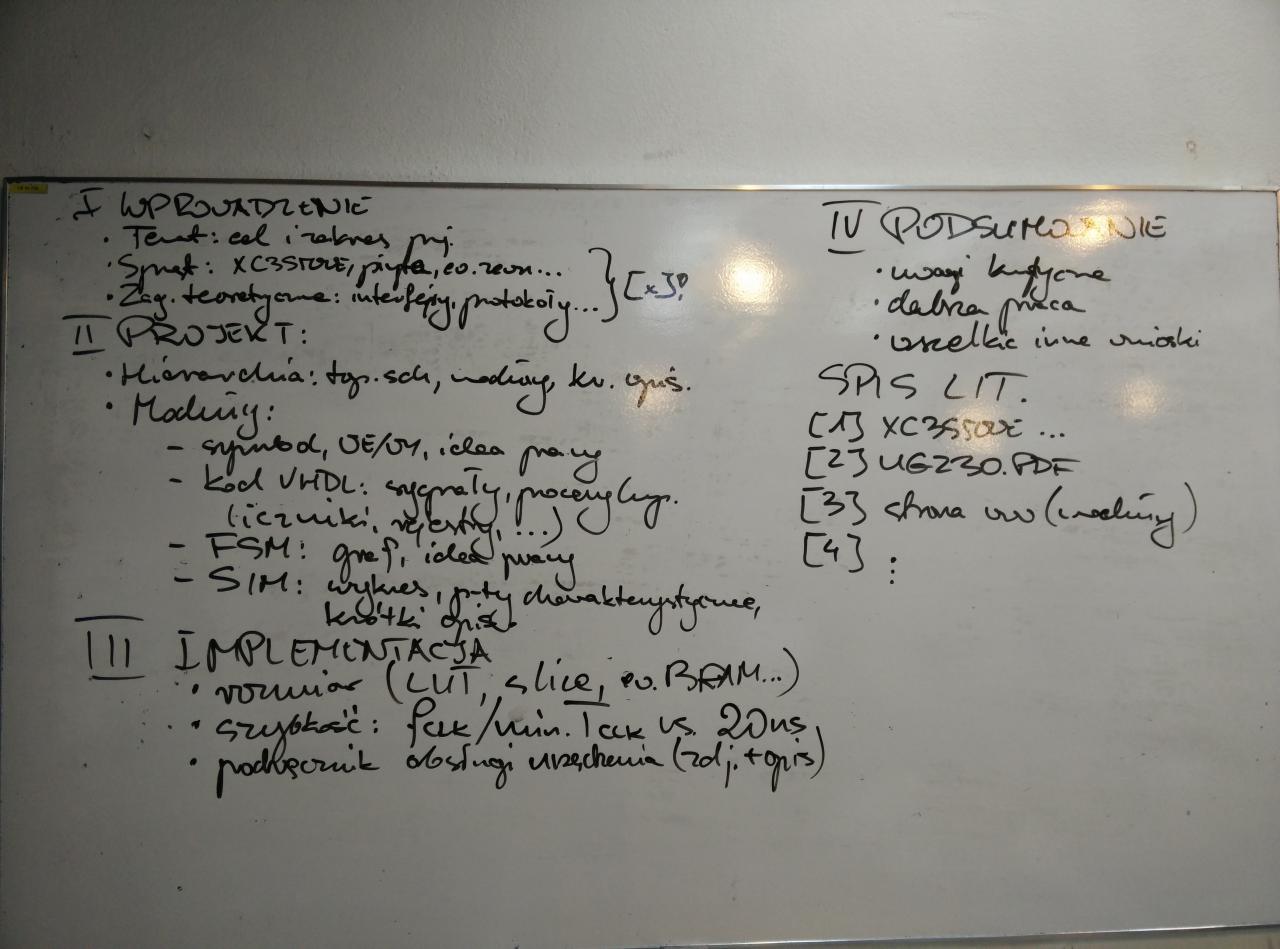 I WPROWADZENIE
• Temat: cel i zakres proj.
• Sprzęt: XC3S500E, płyta, ew. zewn... } [x]?
• Zag. teoretyczne: interfejsy, protokoły...
II PROJEKT:
• Hierarchia: top.sch, moduły, kr. opis.
• Moduły:
– symbol, WE/WY, idea pracy
– kod VHDL: sygnały, procesy/kmp.
(liczniki, rejestry, ...)
– FSM: graf, idea pracy
– SIM: wykres, p-ty charakterystyczne,
krótki opis.
III IMPLEMENTACJA
• rozmiar (LUT, slice, ew. BRAM...)
• szybkość: fclk/min. Tclk vs. 20ns
• podręcznik obsługi urządzenia (zdj. + opis)
IV PODSUMOWANIE
• uwagi krytyczne
• dalsza praca
• wszelkie inne wnioski
SPIS LIT.
[1] XC3S500E ...
[2] UG230.PDF
[3] strona www (moduły)
[4] ⋮